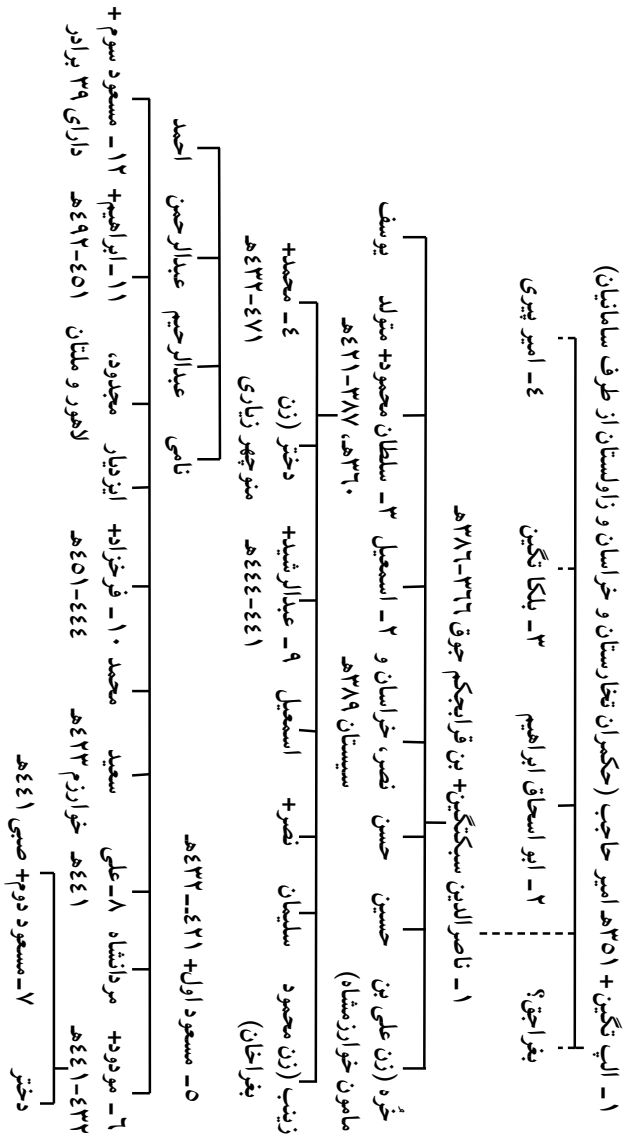 ۱ ـ الپ تگین + ۳۵۱هـ امیر حاجب (حکمران تخارستان و خراسان و زاولستان از طرف سامانیان)
بغراجق؟
۲ ـ ابو اسحاق ابراهیم
۳ ـ بلکا تگین
٤ ـ امیر پیری
۱ ـ ناصرالدین سبکتگین+ بن قرابجکم جوق ۳٦٦-۳۸٦هـ
حُره (زن علی بن
مامون خوارزمشاه)
حسین
حسن
نصر، خراسان و
سیستان ۳۸۹هـ
۲ ـ اسمعیل
۳ ـ سلطان محمود+ متولد
۳٦۰هـ، ۳۸۷-٤۲۱هـ
یوسف
زینب (زن محمود
بغراخان)
سلیمان
نصر+
اسمعیل
۹ ـ عبدالرشید+
٤٤۱-٤٤٤هـ
دختر (زن
منوچهر زیاری
٤ ـ محمد+
٤۷۱-٤۳۲هـ
۵ ـ مسعود اول+ ٤۲۱ــ٤۳۲هـ
نامی
عبدالرحیم
عبدالرحمن
احمد
٦ ـ مودود+
٤۳۲-٤٤۱هـ
مردانشاه
۸ـ علی
٤٤۱هـ
سعید
خوارزم ٤۲۳هـ
محمد
۱۰ ـ فرخزاد+
٤٤٤-٤۵۱هـ
ایزدیار
مجدود،
لاهور و ملتان
۱۱ـ ابراهیم+
٤۵۱-٤۹۲هـ
۱۲ ـ مسعود سوم +
دارای ۳۹ برادر
دختر
۷ ـ مسعود دوم+ صبی ٤٤۱هـ